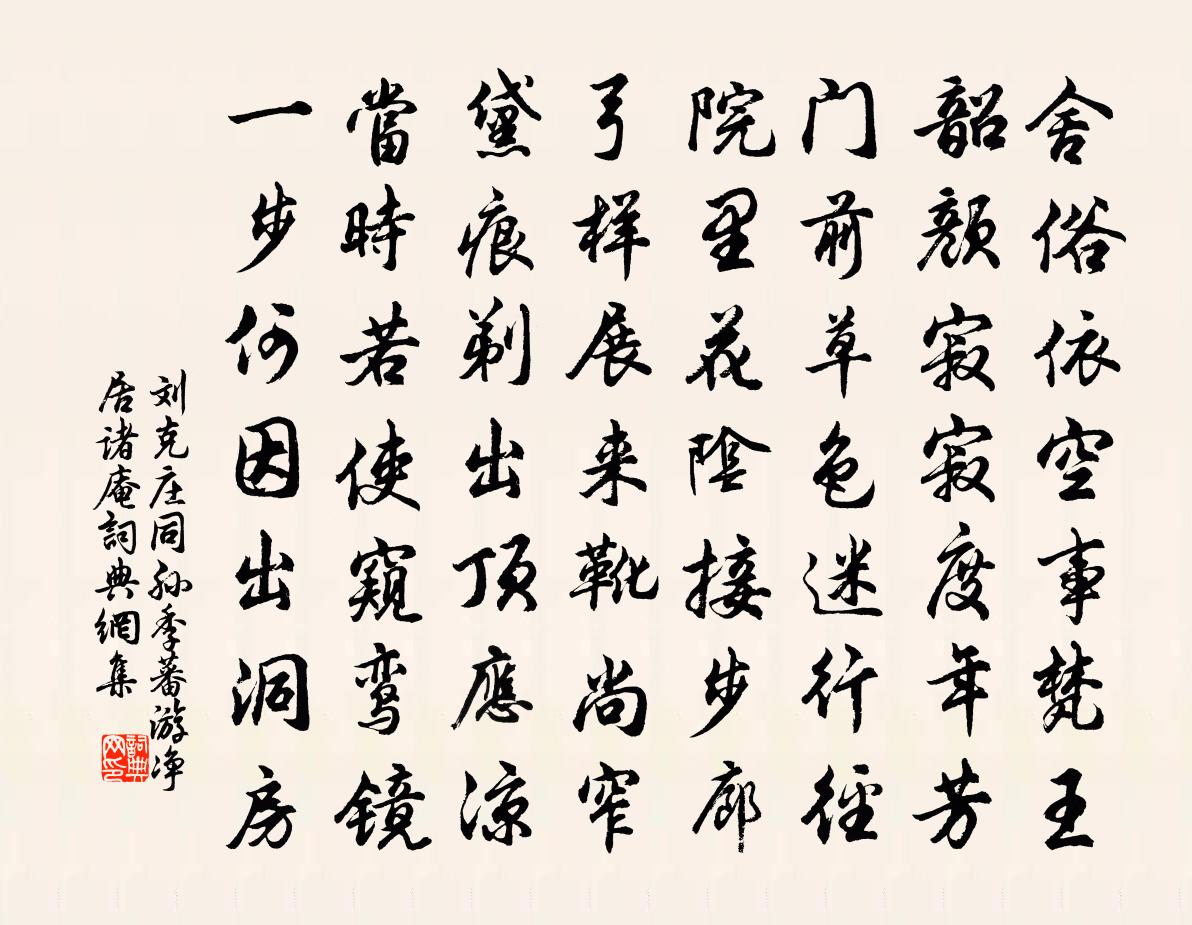 舍俗依空事梵王
韶颜寂寂度年芳
门前草色迷行径
院里花陰接步廊
弓样展来靴尚窄
黛痕剃出顶應凉
當時若使窺鸾镜
一步何因出洞房
刘克庄同孙季蕃游净
居诸庵詞典網集
詞典
网印